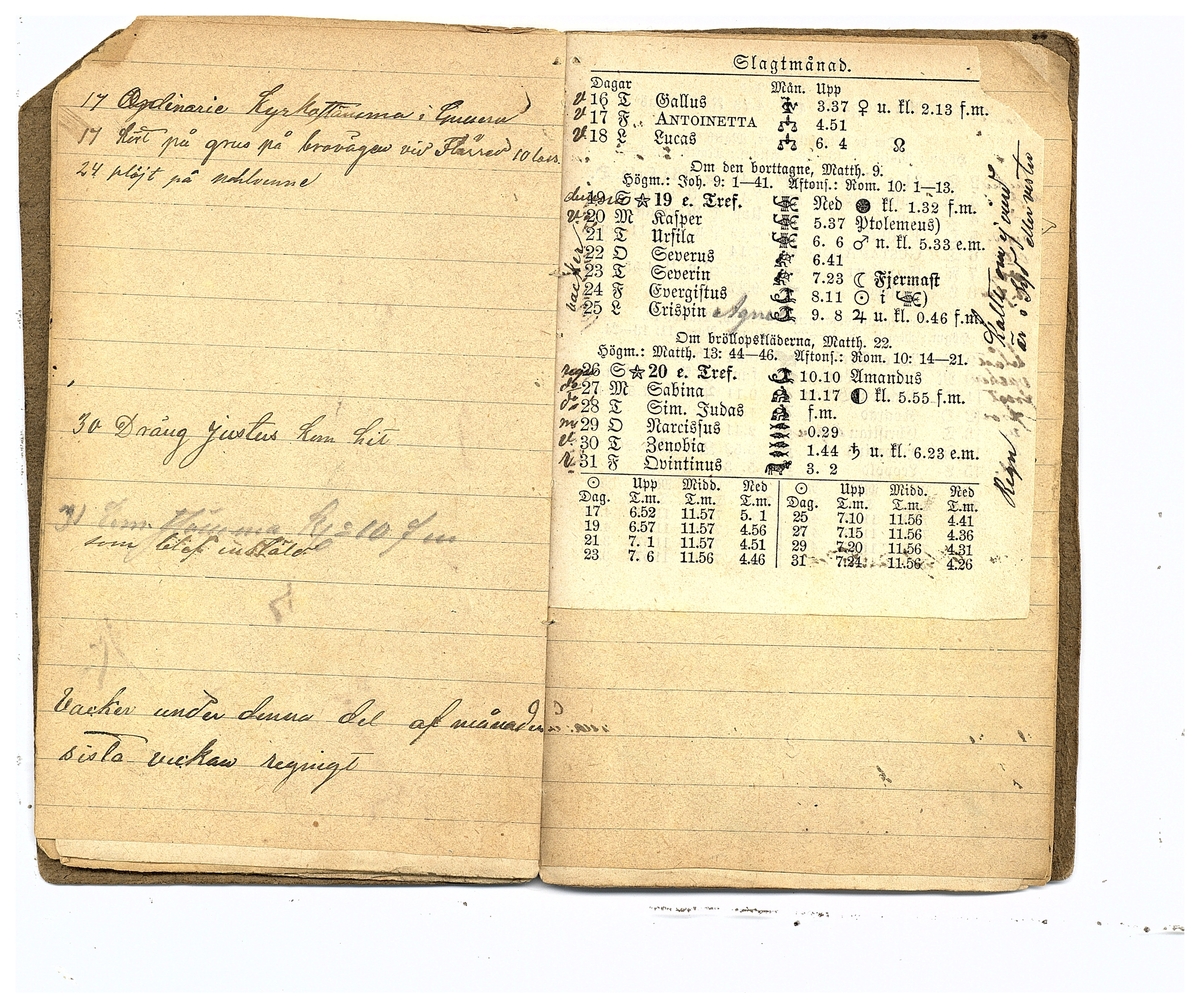 17 Ordinarie Kyrkostämma i
17 Kört på grus på brovägen vid Flärred 10 lass
24 plöjt på
30 Dräng Justus kom hit
31 kom Hämma kl 10 f m
som blef inställd
Vacker under denna del af månaden
sista veckan regnigt
Slagtmånad.
Dagar Mån. Upp
v 16 T Gallus 3.37 ♀ u. kl. 2.13 f.m.
v 17 F ANTOINETTA 4.51
v 18 L Lucas 6. 4 ☊
Om den borttagne, Matth. 9.
Högm.: Joh. 9: 1—41. Aftons.: Rom. 10: 1—13.
19 S ☆ 19 e. Tref. Ned ● kl. 1.32 f.m.
20 M Kasper 5.37 Ptolemeus)
21 T Ursila 6. 6 ♂ n. kl. 5.33 e.m.
22 O Severus 6.41
23 T Severin 7.23 ☾ Fjermast
24 F Evergistus 8.11 ☉ i ♏)
25 L Crispin Agne 9. 8 ♃ u. kl. 0.46 f.m.
vacker
Om bröllopskläderna, Matth. 22.
Högm.: Matth. 13: 44—46. Aftons.: Rom. 10: 14—21.
regn 26 S ☆ 20 e. Tref. 10.10 Amandus
do 27 M Sabina 11.17 ◐ kl. 5.55 f.m.
do 28 T Sim. Judas f.m.
m 29 O Narcissus 0.29
v 30 T Zenobia 1.44 ♄ u. kl. 6.23 e.m.
v 31 F Qvintinus 3. 2
☉ Upp Midd. Ned ☉ Upp Midd. Ned
Dag. T.m. T.m. T.m. Dag. T.m. T.m. T.m.
17 6.52 11.57 5. 1 25 7.10 11.56 4.41
19 6.57 11.57 4.56 27 7.15 11.56 4.36
21 7. 1 11.57 4.51 29 7.20 11.56 4.31
23 7. 6 11.56 4.46 31 7.24 11.56 4.26
Regn kallt om ej vind
är i Syd eller vester